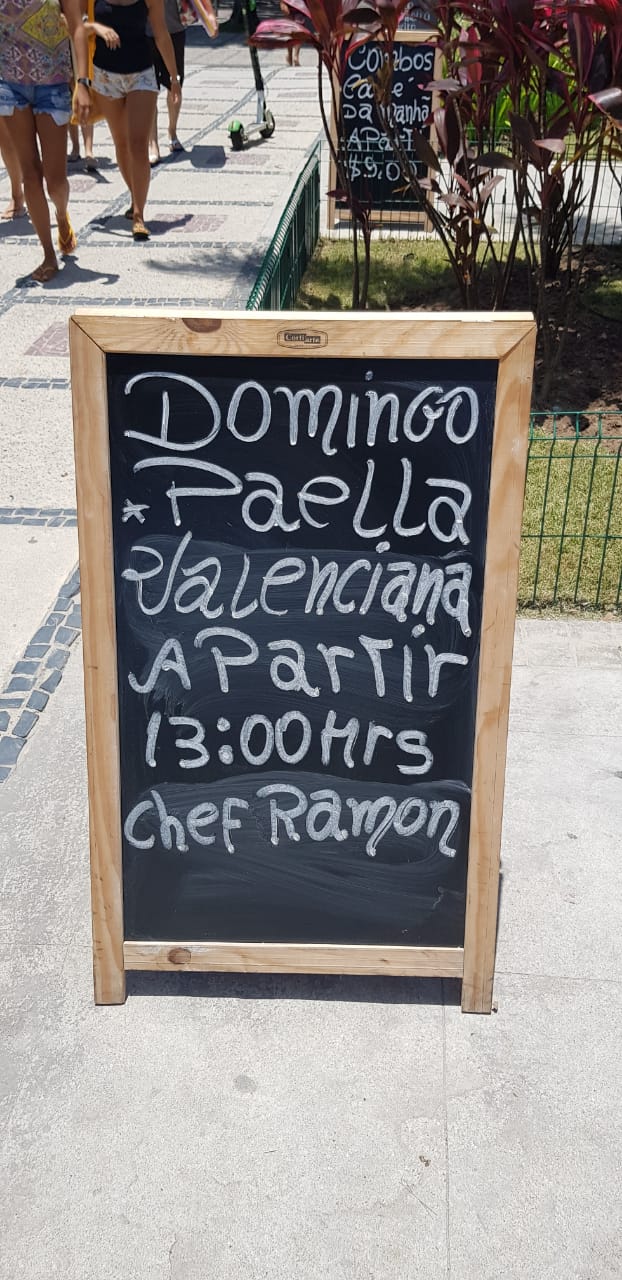 Combos
Café
Da manhã
A Part
$9,0
Domingo
* Paella
Valenciana
A Partir
13:00Hrs
chef Ramon